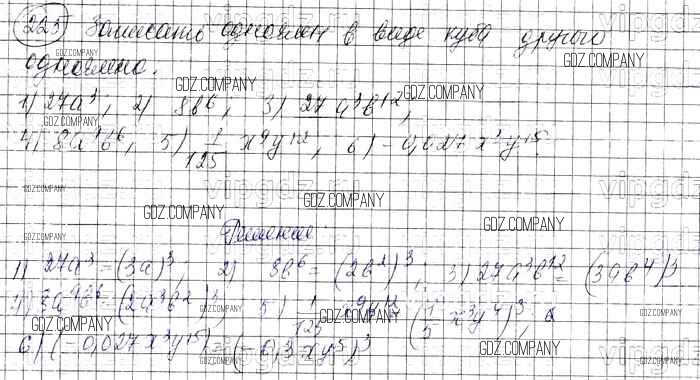 225 Записать одночлен в виде куба другого
одночлена.
1) 27a³; 2) 8b⁶, 3) 27a³b¹²;
4) 8a⁹b⁶, 5) 1/125 x⁹y¹², 6) -0,027x³y¹⁵.
Решение.
1) 27a³ = (3a)³; 2) 8b⁶ = (2b²)³; 3) 27a³b¹² = (3ab⁴)³
4) 8a⁹b⁶ = (2a³b²)³; 5) 1/125 x⁹y¹² = (1/5 x³y⁴)³;
6) (-0,027x³y¹⁵) = (-0,3xy⁵)³
GDZ.COMPANY
vipgdz.ru